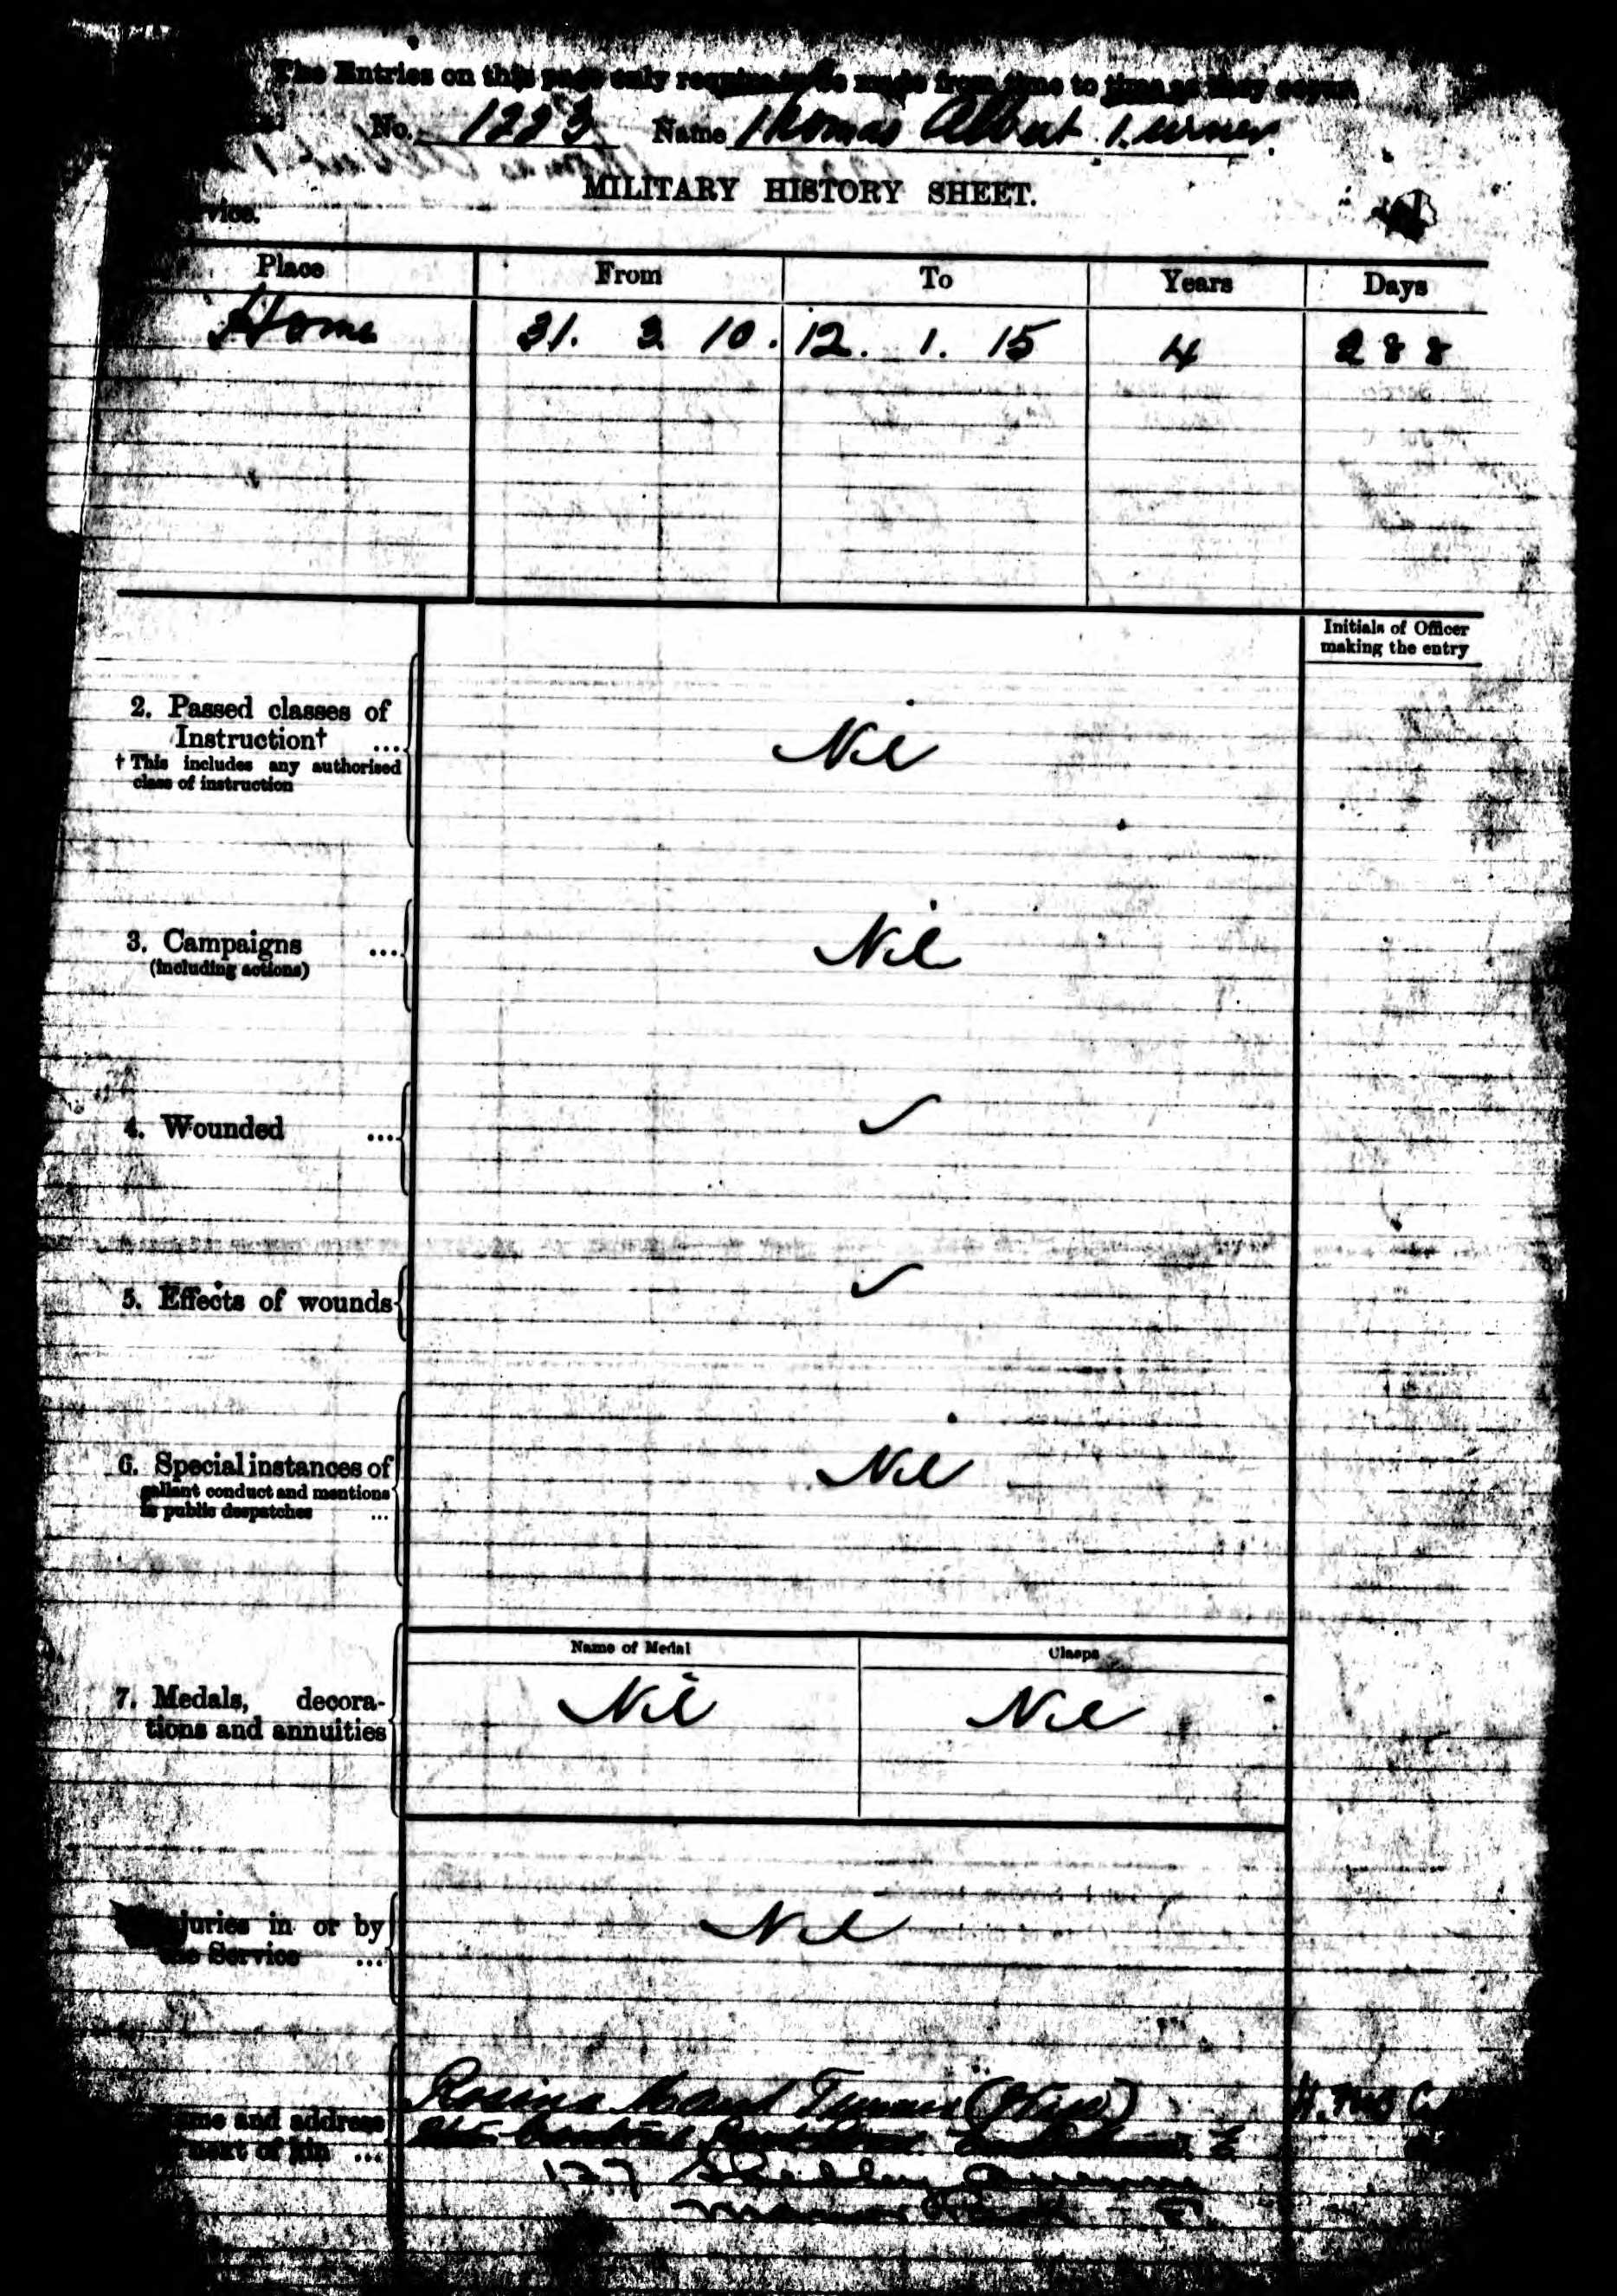 The Entries on this page only require to be made from time to time as they occur.
No. 1223 Name Thomas Albert Turner
MILITARY HISTORY SHEET.
Place From To Years Days
Home 31. 3 10. 12. 1. 15 4 288
Initials of Officer
making the entry
2. Passed classes of
Instruction† ...
† This includes any authorised
class of instruction
Nil
3. Campaigns ...
(including actions)
Nil
4. Wounded ... ✓
5. Effects of wounds ✓
6. Special instances of
gallant conduct and mentions
in public despatches ...
Nil
Name of Medal Clasps
7. Medals, decora-
tions and annuities
Nil Nil
juries in or by
the Service ...
Nil
Rosina Maud Turner (Wife)
name and address
next of kin ...
Central
177 Shelley Avenue
Manor Park E